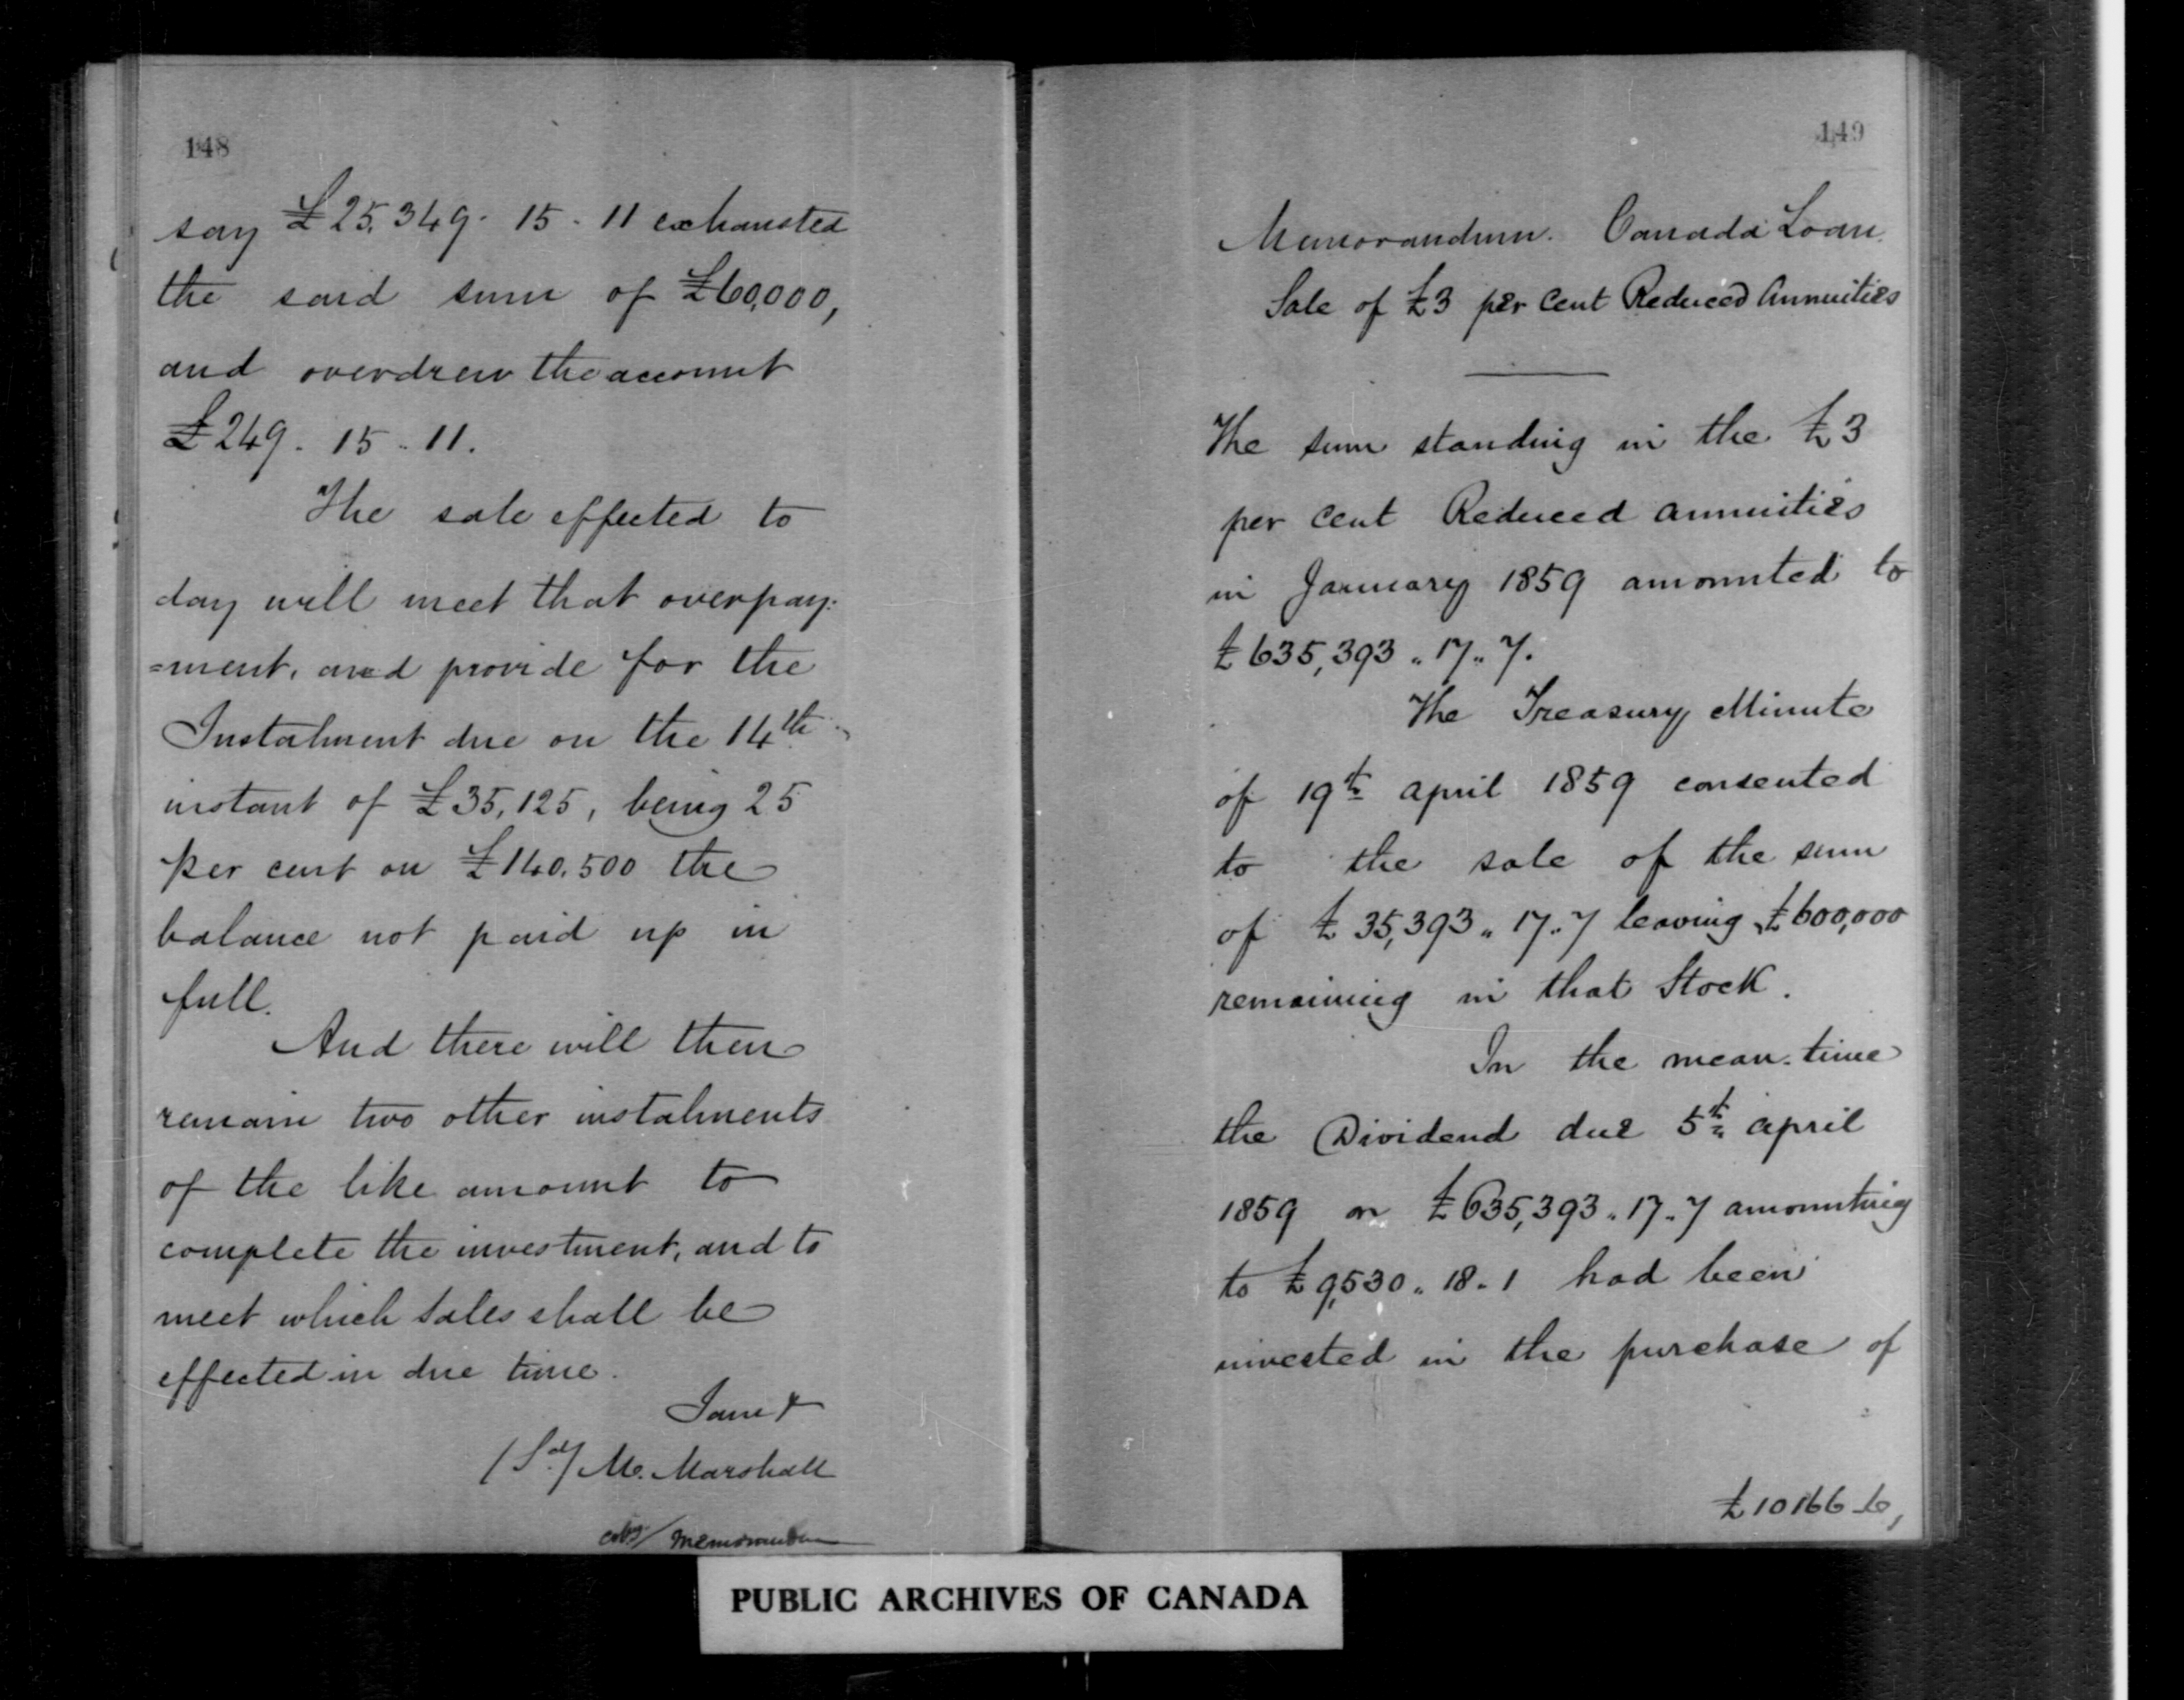 148
say £25,349. 15 - 11 exhausted
the said sum of £60,000,
and overdrew the account
£249. 15 - 11.
The sale effected to
day will meet that overpay:
=ment, and provide for the
Instalment due on the 14th
instant of £35,125, being 25
per cent on £140,500 the
balance not paid up in
full.
And there will then
remain two other instalments
of the like amount to
complete the investment, and to
meet which sales shall be
effected in due time.
I am &
(Sd/ M. Marshall
Memorandum
149
Memorandum. Canada Loan.
Sale of £3 per Cent Reduced Annuities
The sum standing in the £3
per Cent Reduced Annuities
in January 1859 amounted to
£635,393 .. 17 .. 7.
The Treasury Minute
of 19th April 1859 consented
to the sale of the sum
of £35,393 .. 17 .. 7 leaving £600,000
remaining in that Stock.
In the mean-time
the Dividend due 5th April
1859 on £635,393 .. 17 .. 7 amounting
to £9,530 .. 18 .. 1 had been
invested in the purchase of
£10166
PUBLIC ARCHIVES OF CANADA